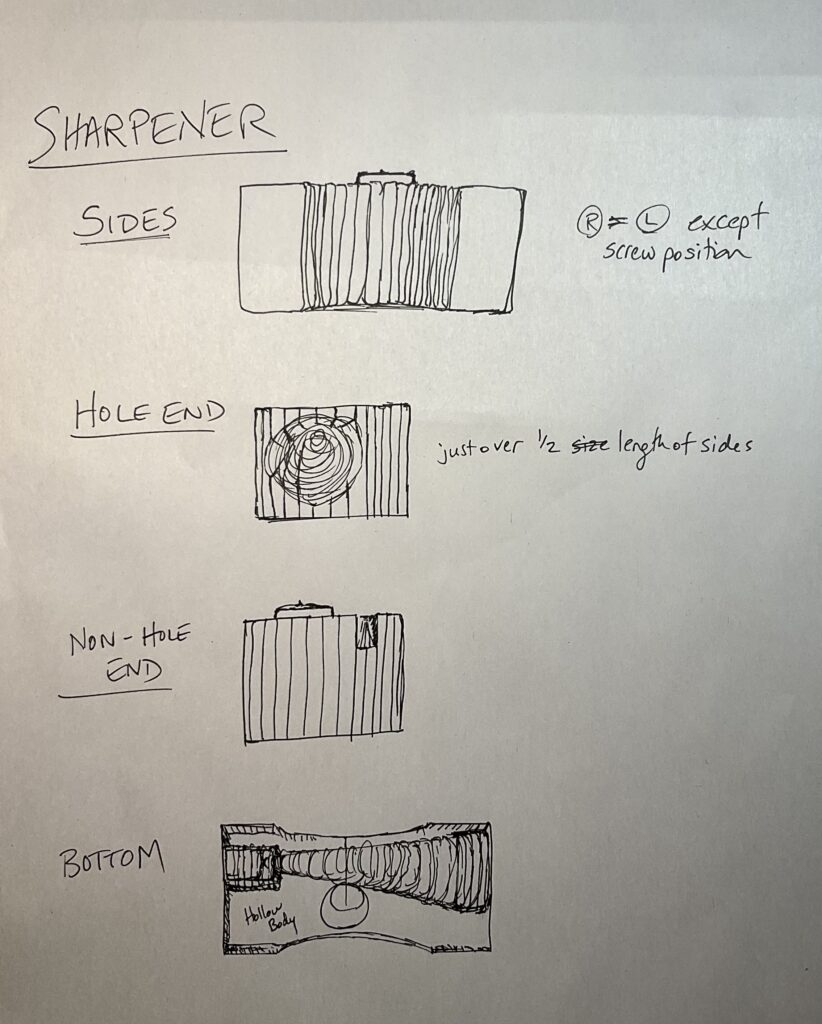 SHARPENER
SIDES
Ⓡ = Ⓛ except
screw position
HOLE END
just over 1/2 size length of sides
NON-HOLE
END
BOTTOM
Hollow
Body